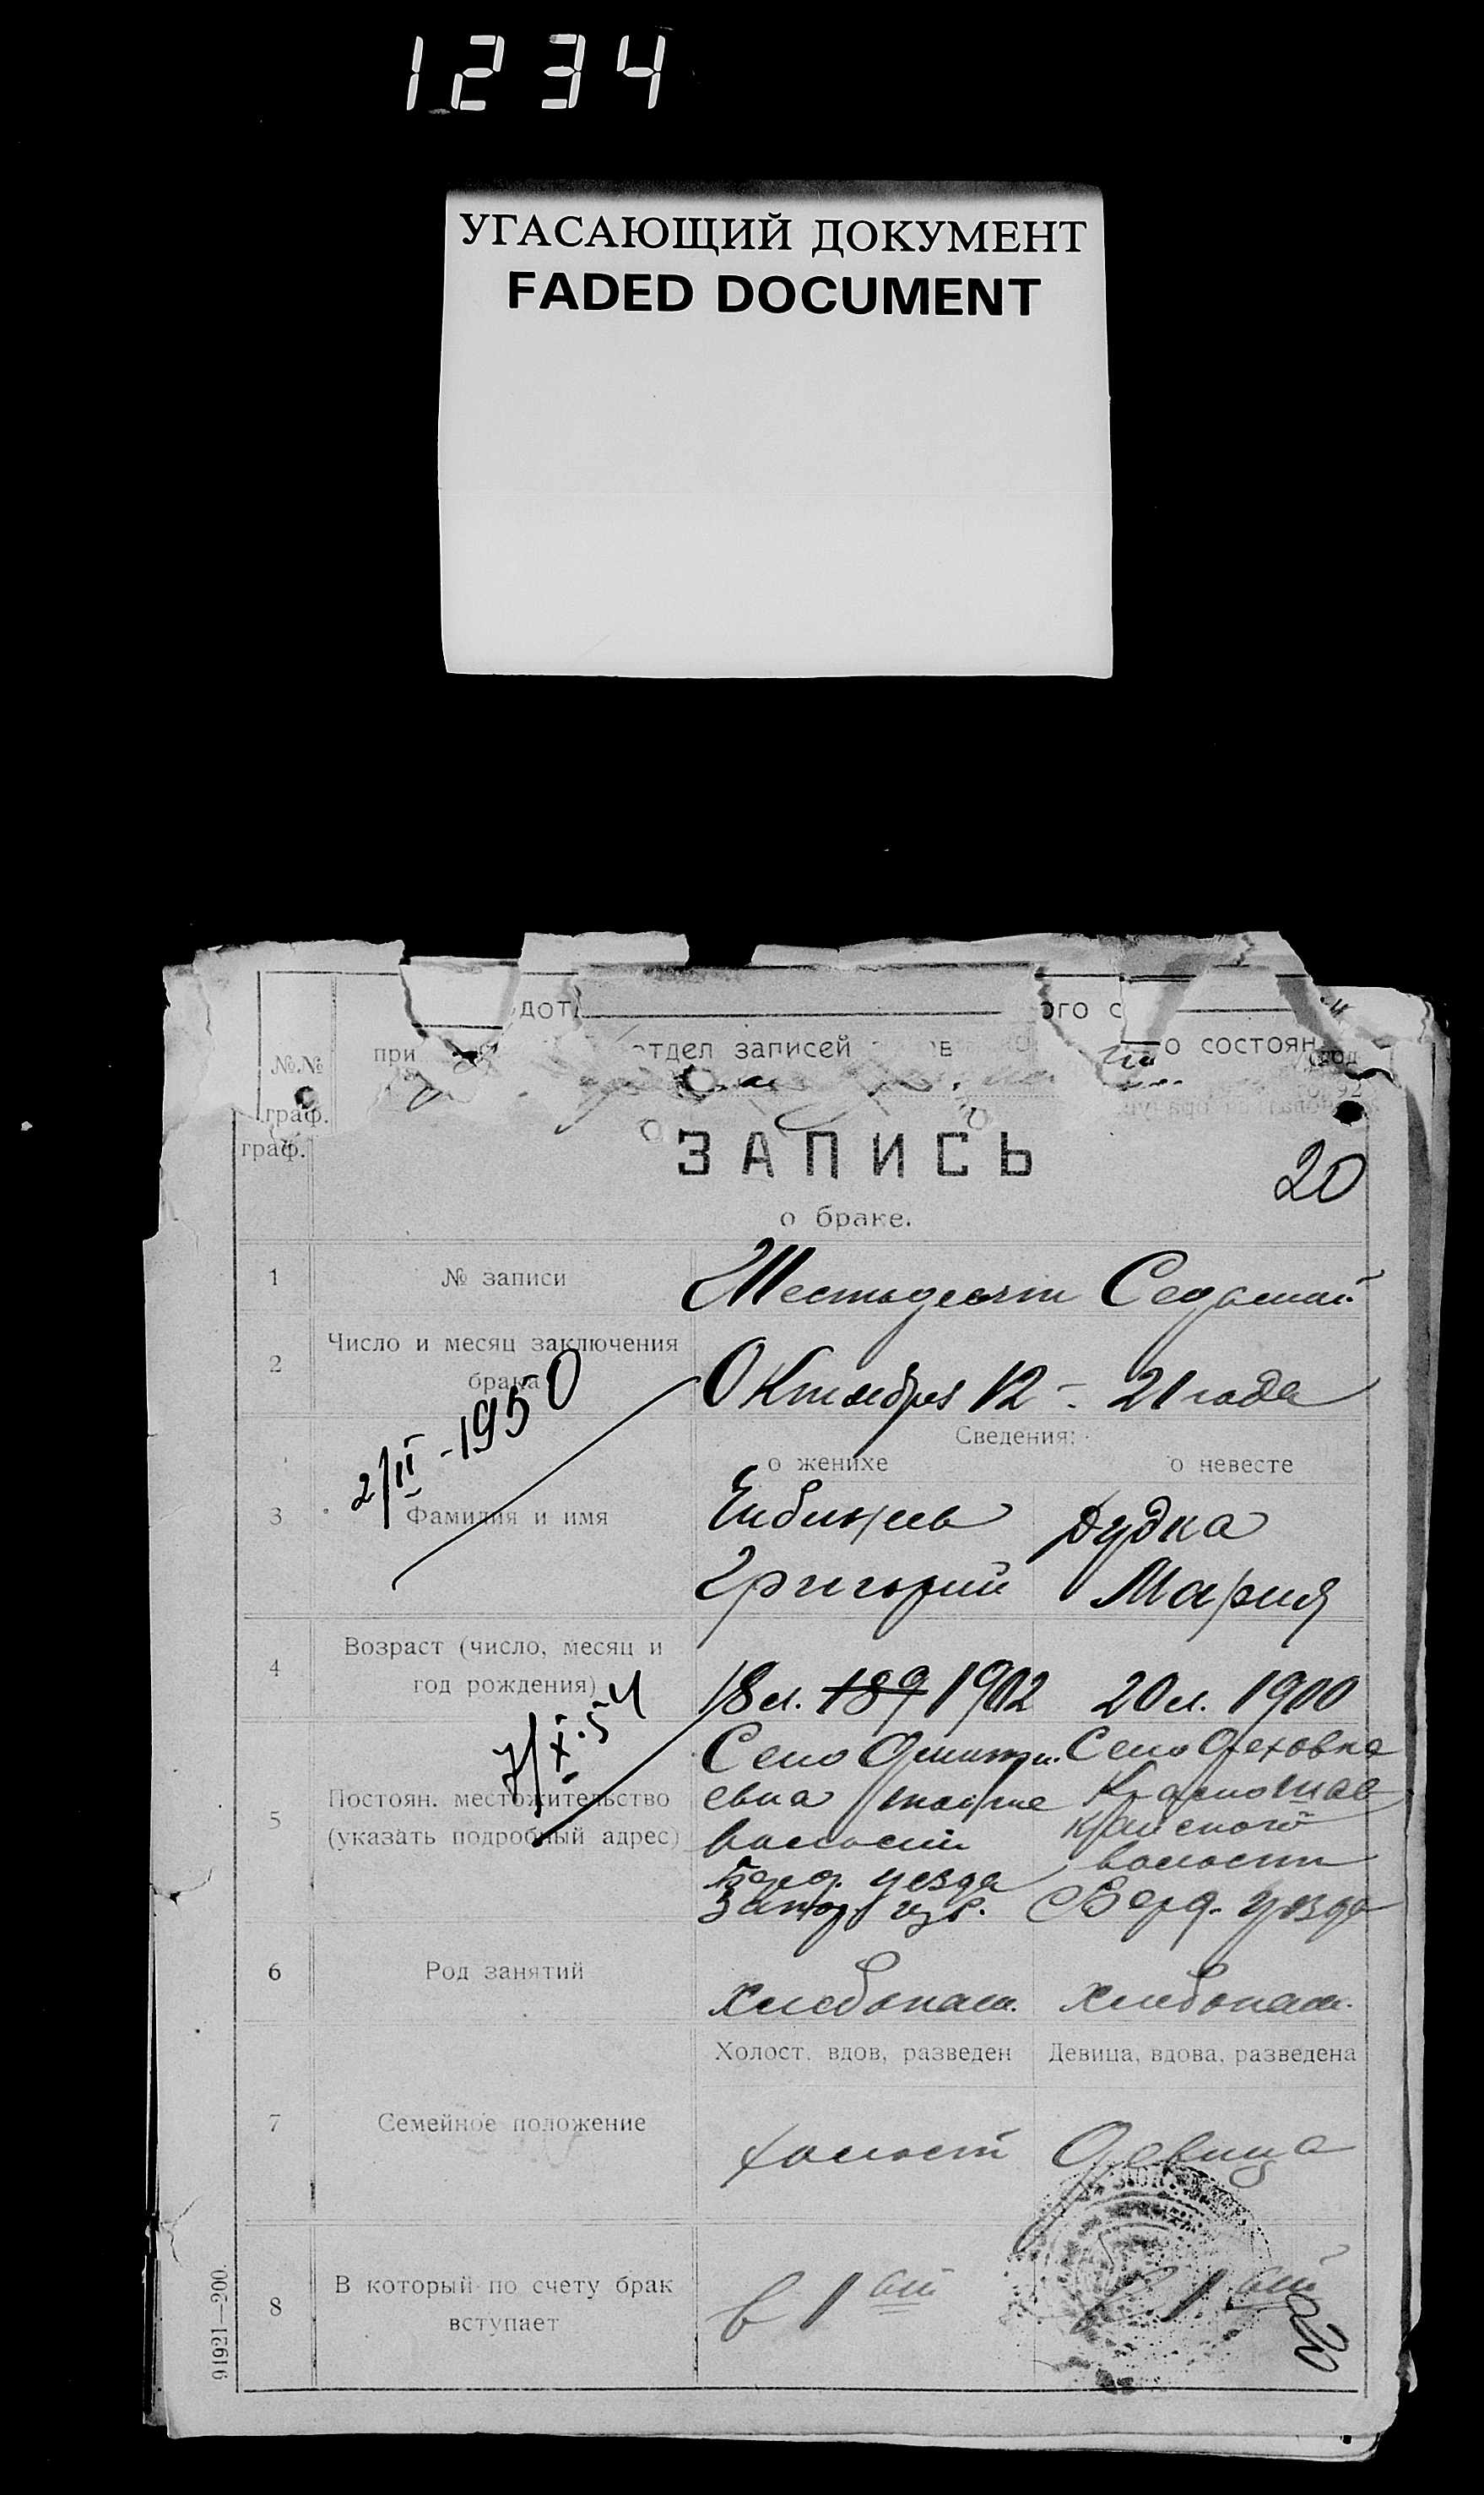 1234
УГАСАЮЩИЙ ДОКУМЕНТ
FADED DOCUMENT
№№
граф.
при
отдел записей
о состоян
граф.
ЗАПИСЬ
20
о браке.
1 № записи Шестьдесят Седьмой
2 Число и месяц заключения
брака Октября 12 - 21 года
2/II - 1950
Сведения:
о женихе о невесте
3 Фамилия и имя Дудка
Григорий Мария
4 Возраст (число, месяц и
год рождения) 18 л. 189 1902 20 л. 1900
7/X.54
5 Постоян. местожительство
(указать подробный адрес)
Село Дмитри
евка
волости
Берд. уезда
Запор. губ.
Село Ореховка
волости
Берд. уезда
6 Род занятий хлебопаш. хлебопаш.
Холост, вдов, разведен Девица, вдова, разведена
7 Семейное положение холост Девица
8 В который по счету брак
вступает в 1 ый в 1 ый
20
91921—200.